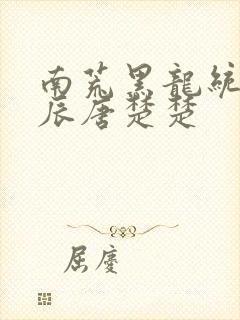 南荒黑龍統
辰唐楚楚
屈慶